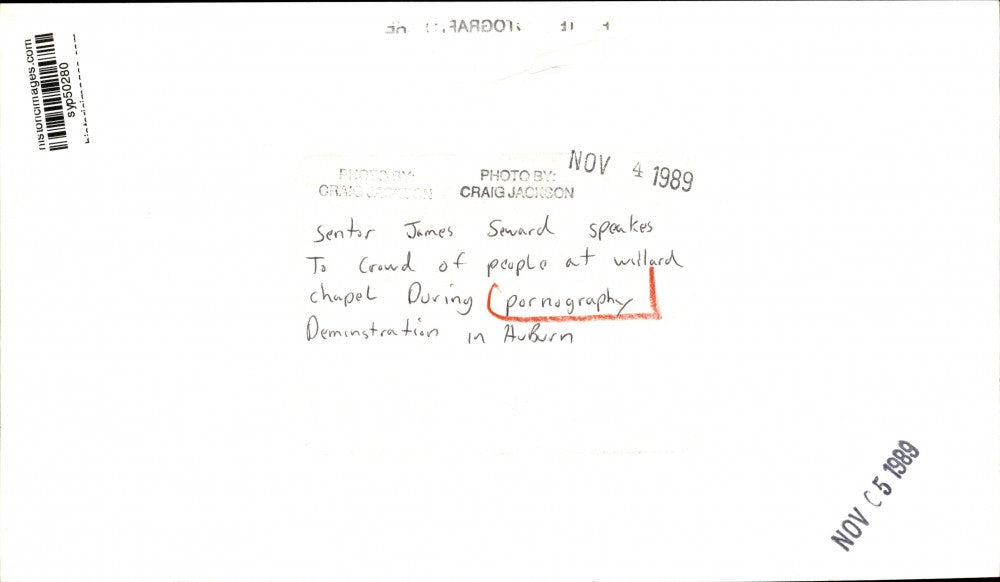 historicimages.com
syp50280
PHOTO BY: PHOTO BY:
CRAIG JACKSON CRAIG JACKSON
NOV 4 1989
Sentor James Seward speakes
To Crowd of people at willard
chapel During pornography
Deminstration in AuBurn
NOV 05 1989